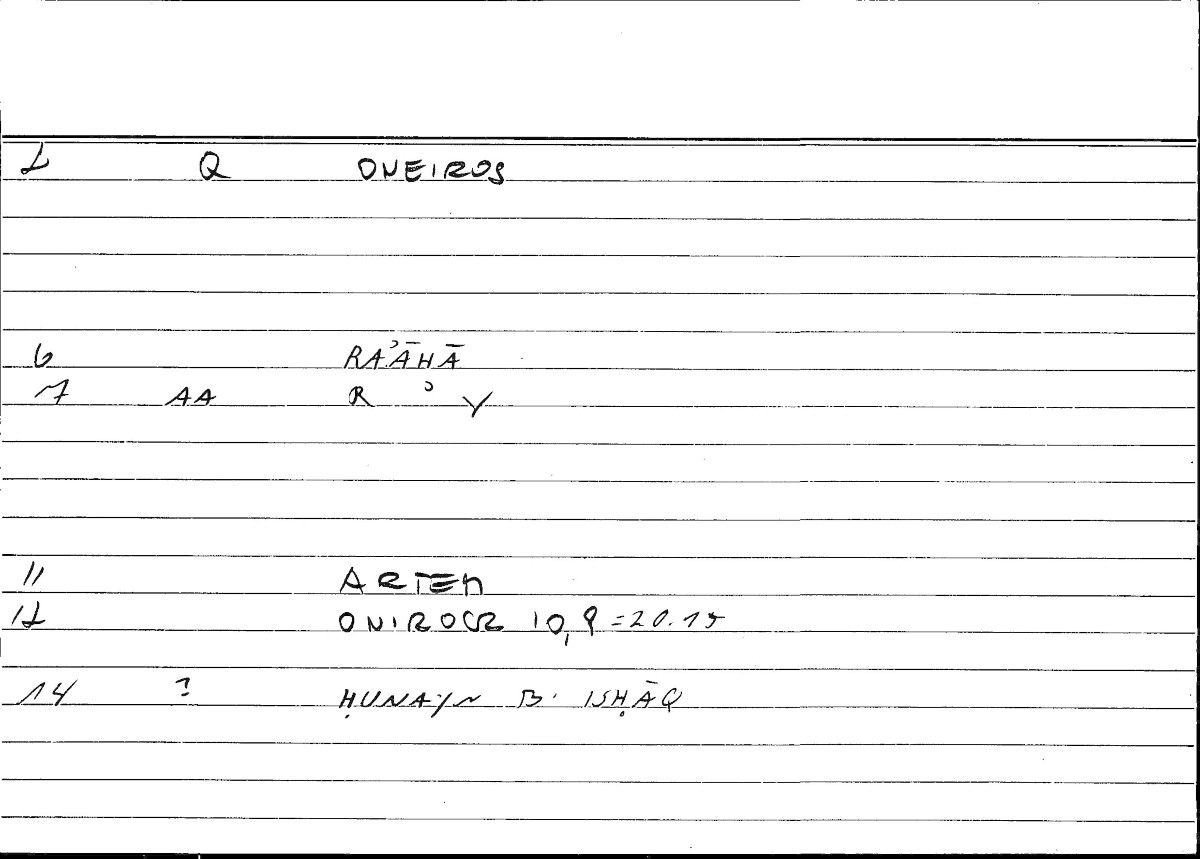 1 Q ONEIROS
6 RAʾĀHĀ
7 AA R ʾ Y
11 ARTEM
12 ONIROCR 10,9 = 20.15
14 ? ḤUNAYN B. ISḤĀQ